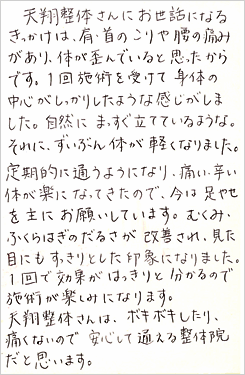 天翔整体さんにお世話になる
きっかけは、肩・首のこりや腰の痛み
があり、体が歪んでいると思ったから
です。1回施術を受けて身体の
中心がしっかりしたような感じがしま
した。自然にまっすぐ立てているような。
それに、ずいぶん体が軽くなりました。
定期的に通うようになり、痛い、辛い
体が楽になってきたので、今は足やせ
を主にお願いしています。むくみ、
ふくらはぎのだるさが改善され、見た
目にもすっきりとした印象になりました。
1回で効果がはっきりと分かるので
施術が楽しみになります。
天翔整体さんは、ボキボキしたり、
痛くないので安心して通える整体院
だと思います。